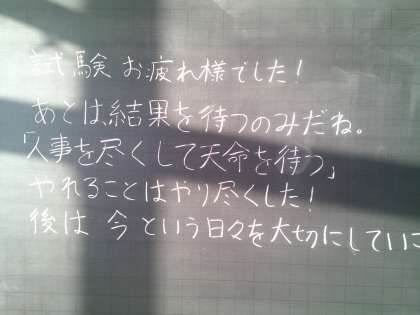 試験 お疲れ様でした!
あとは、結果を待つのみだね。
「人事を尽くして天命を待つ」
やれることはやり尽くした!
後は 今という日々を大切にしていこ